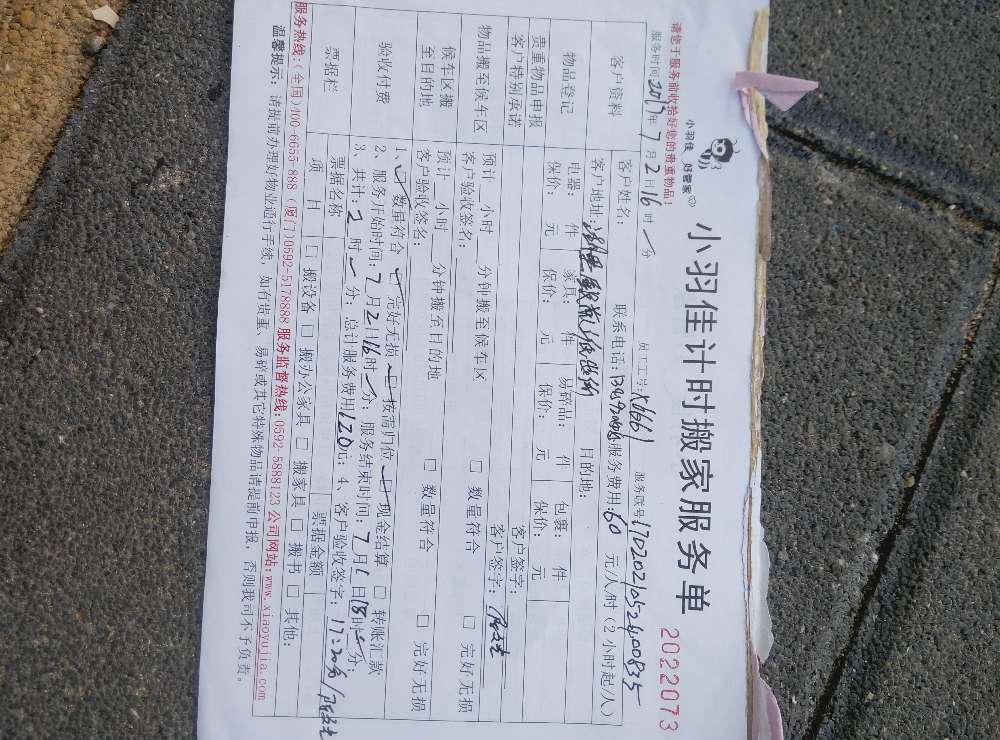 小羽佳 好管家
小羽佳计时搬家服务单 2022073
请您于服务前收拾好您的贵重物品!
服务时间2017年7月2日16时 分 员工工号:K0661 服务联号:
客户资料 客户姓名: 联系电话: 服务费用:60 元/人/时(2小时起/人)
客户地址: 目的地:
物品登记 电器: 件 家具: 件 易碎品: 件 包裹: 件
贵重物品申报 保价: 元 保价: 元 保价: 元 保价: 元
客户特别承诺 客户签字:
物品搬至候车区 预计 小时 分钟搬至候车区 □ 数量符合 □ 完好无损
客户验收签名: 客户签字:
候车区搬至目的地 预计 小时 分钟搬至目的地 □ 数量符合 □ 完好无损
客户验收签名:
验收付费 1、 数量符合 完好无损 按需归位 现金结算 □ 转账汇款
2、服务开始时间:7月2日16时 分;服务结束时间:7月 日18时 分;
3、共计:2时 分;总计服务费用120元;4、客户验收签字:17:20分/
票据栏 票据名称 票据金额
项目 □ 搬设备 □ 搬办公家具 □ 搬家具 □ 搬书 □ 其他:
服务热线:(全国)400-6655-888 (厦门)0592-5178888 服务监督热线:0592-5888123 公司网站:www.xiaoyujia.com
温馨提示:请提前办理好物业通行手续,如有贵重、易碎或其它特殊物品请提前申报,否则我司不予负责。